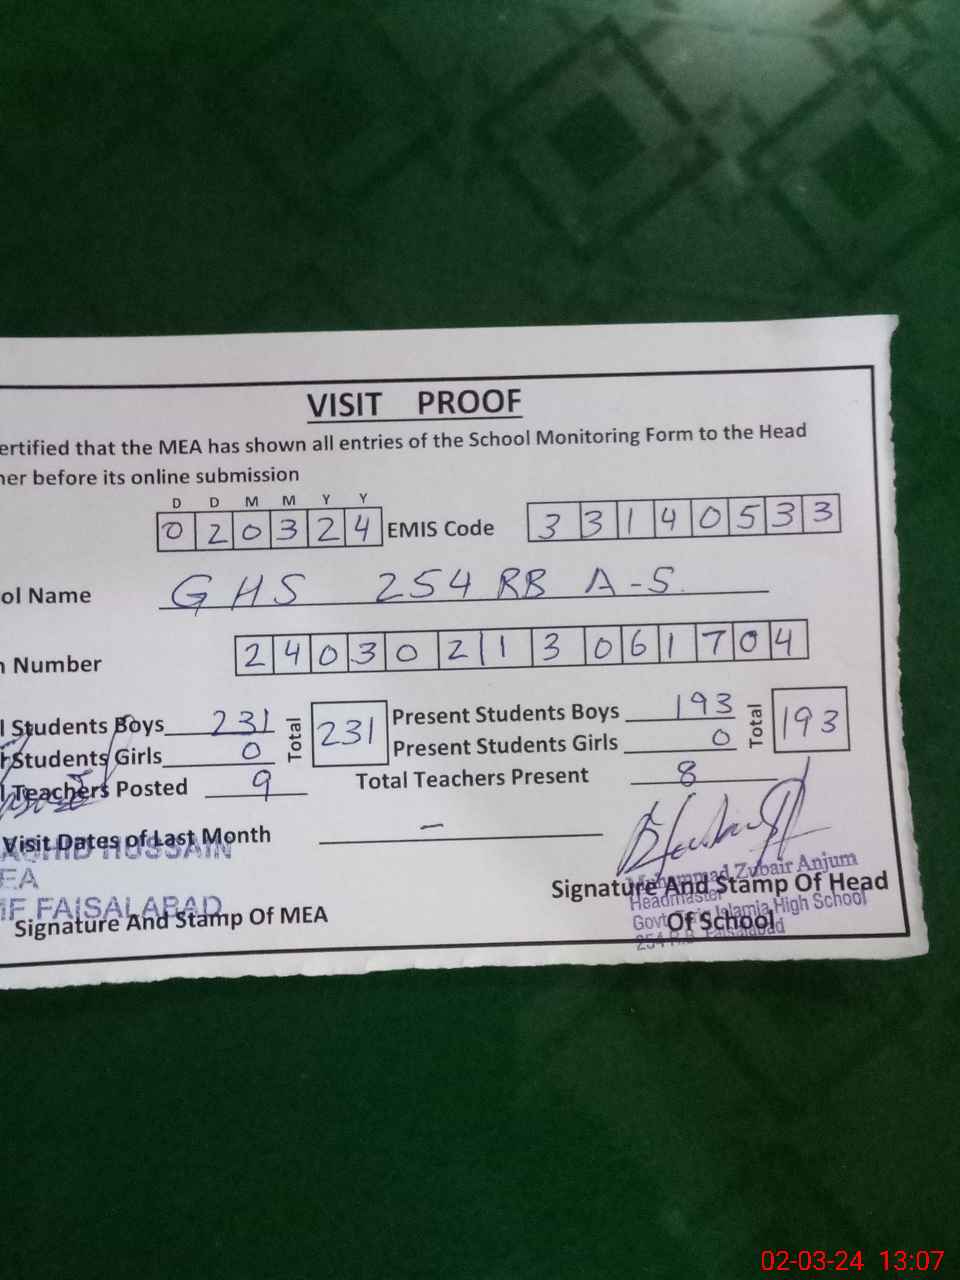 VISIT PROOF
ertified that the MEA has shown all entries of the School Monitoring Form to the Head
ner before its online submission
D D M M Y Y
0 2 0 3 2 4 EMIS Code 3 3 1 4 0 5 3 3
ol Name GHS 254 RB A-S.
n Number 2 4 0 3 0 2 1 3 0 6 1 7 0 4
l Students Boys 231 Total 231 Present Students Boys 193 Total 193
l Students Girls 0 Present Students Girls 0
l Teachers Posted 9 Total Teachers Present 8
Visit Dates of Last Month –
HUSSAIN
EA
FAISALABAD
Signature And Stamp Of MEA
Muhammad Zubair Anjum
Signature And Stamp Of Head
Headmaster
Islamia High School
Of School
254 R.B. Faisalabad
02-03-24 13:07